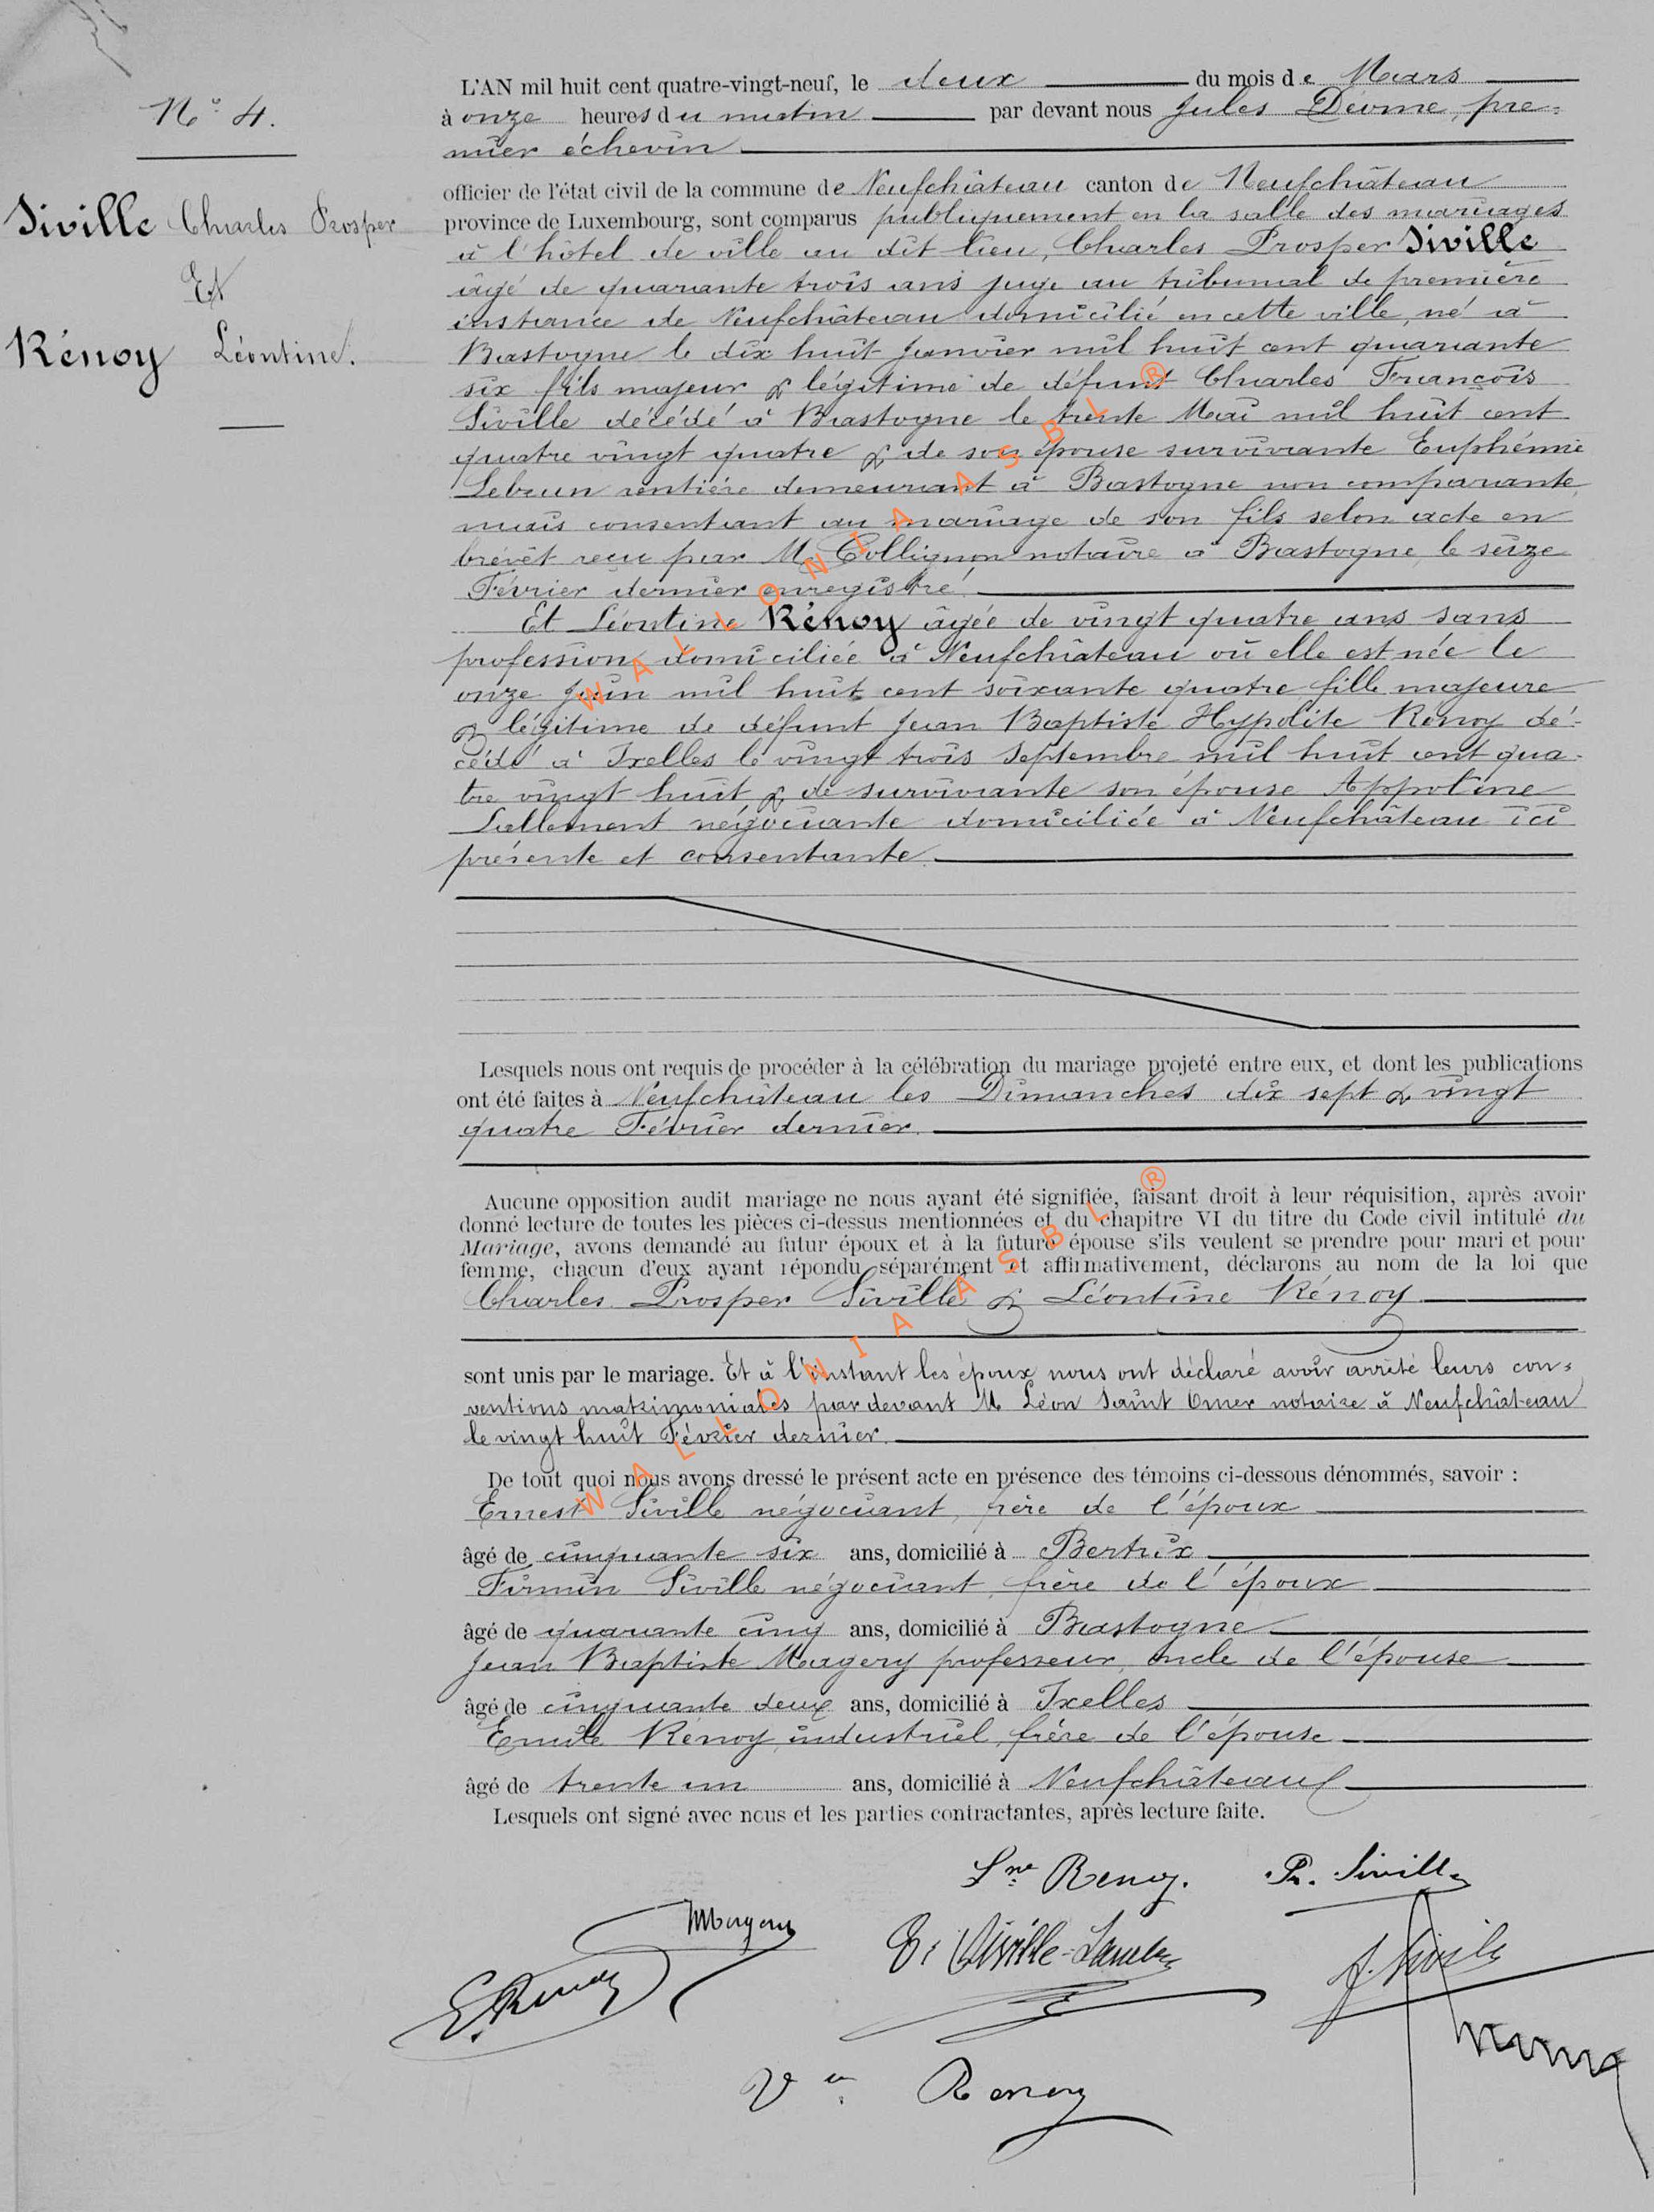 N° 4.
Siville Charles Prosper
Et
Rénoy Léontine.
L'AN mil huit cent quatre-vingt-neuf, le deux du mois de Mars
à onze heures du matin par devant nous Jules Déome, pre-
mier échevin
officier de l'état civil de la commune de Neufchâteau canton de Neufchâteau
province de Luxembourg, sont comparus publiquement en la salle des mariages
à l'hôtel de ville au dit lieu, Charles Prosper Siville
âgé de quarante trois ans juge au tribunal de première
instance de Neufchâteau domicilié en cette ville, né à
Bastogne le dix huit Janvier mil huit cent quarante
six fils majeur & légitime de défunt Charles François
Siville décédé à Bastogne le trente Mai mil huit cent
quatre vingt quatre & de son épouse survivante Euphémie
Lebrun rentière demeurant à Bastogne non comparante,
mais consentant au mariage de son fils selon acte en
brévêt reçu par M. Collignon notaire à Bastogne, le seize
Février dernier enregistré.
Et Léontine Rénoy âgée de vingt quatre ans sans
profession domiciliée à Neufchâteau où elle est née le
onze Juin mil huit cent soixante quatre fille majeure
& légitime de défunt Jean Baptiste Hypolite Renoy dé-
cédé à Ixelles le vingt trois Septembre mil huit cent qua-
tre vingt huit & de survivante son épouse Appoline
Lallement négociante domiciliée à Neufchâteau ici
présente et consentante.
Lesquels nous ont requis de procéder à la célébration du mariage projeté entre eux, et dont les publications
ont été faites à Neufchâteau les Dimanches dix sept & vingt
quatre Février dernier.
Aucune opposition audit mariage ne nous ayant été signifiée, faisant droit à leur réquisition, après avoir
donné lecture de toutes les pièces ci-dessus mentionnées et du chapitre VI du titre du Code civil intitulé du
Mariage, avons demandé au futur époux et à la future épouse s'ils veulent se prendre pour mari et pour
femme, chacun d'eux ayant répondu séparément et affirmativement, déclarons au nom de la loi que
Charles Prosper Siville & Léontine Rénoy
sont unis par le mariage. Et à l'instant les époux nous ont déclaré avoir arrêté leurs con-
ventions matrimoniales par devant M. Léon Saint Omer notaire à Neufchâteau
le vingt huit Février dernier.
De tout quoi nous avons dressé le présent acte en présence des témoins ci-dessous dénommés, savoir :
Ernest Siville négociant, frère de l'époux
âgé de cinquante six ans, domicilié à Bertrix
Firmin Siville négociant, frère de l'époux
âgé de quarante cinq ans, domicilié à Bastogne
Jean Baptiste Magery professeur, oncle de l'épouse
âgé de cinquante deux ans, domicilié à Ixelles
Emile Rénoy, industriel, frère de l'épouse
âgé de trente un ans, domicilié à Neufchâteau
Lesquels ont signé avec nous et les parties contractantes, après lecture faite.
Lne Renoy. Pr. Siville
Magery
E. Siville-
F. Siville
E. Renoy
Ve Renoy
WALLONIA ASBL ®
WALLONIA ASBL ®